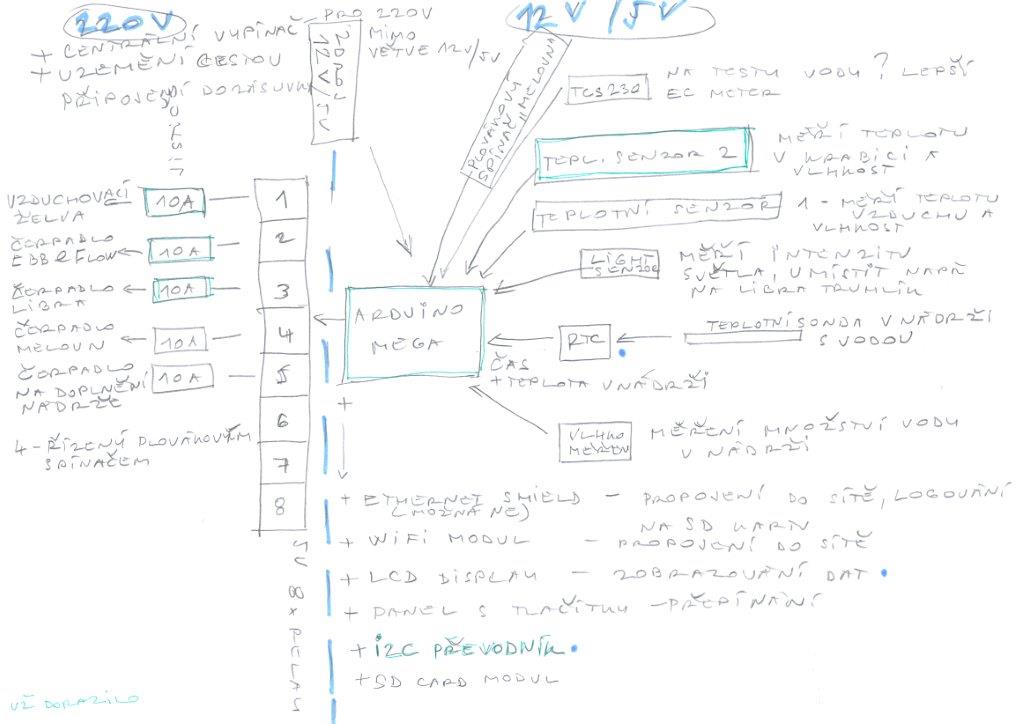 220V
+ CENTRÁLNÍ VYPÍNAČ
+ UZEMĚNÍ CESTOU
PŘIPOJENÍ DO ZÁSUVKY
PRO 220V
MIMO
VĚTVE 12V/5V
12V/5V
12V/5V
PLOVÁKOVÝ
SPÍNAČ "MELOUNA"
TCS230
NA TESTU VODY? LEPŠÍ
EC METER
TEPL. SENZOR 2
MĚŘÍ TEPLOTU
V KRABICI A
VLHKOST
TEPLOTNÍ SENZOR
1 - MĚŘÍ TEPLOTU
VZDUCHU A
VLHKOST
LIGHT
SENZOR
MĚŘÍ INTENZITU
SVĚTLA, UMÍSTIT NAPŘ
NA LIBRA TRUHLÍK
ARDUINO
MEGA
RTC
TEPLOTNÍ SONDA V NÁDRŽI
S VODOU
ČAS
+ TEPLOTA V NÁDRŽI
VLHKO
MĚŘENÍ MNOŽSTVÍ VODY
V NÁDRŽI
VZDUCHOVACÍ
ŽELVA
10A
1
ČERPADLO
EBB & FLOW
10A
2
ČERPADLO
LIBRA
10A
3
ČERPADLO
MELOUN
10A
4
ČERPADLO
NA DOPLNĚNÍ
NÁDRŽE
10A
5
6
7
8
4 - ŘÍZENÝ PLOVÁKOVÝM
SPÍNAČEM
5V 8x RELAY
+
+ ETHERNET SHIELD - PROPOJENÍ DO SÍTĚ, LOGOVÁNÍ
(MOŽNÁ NE)
NA SD KARTU
+ WIFI MODUL - PROPOJENÍ DO SÍTĚ
+ LCD DISPLAY - ZOBRAZOVÁNÍ DAT
+ PANEL S TLAČÍTKY - PŘEPÍNÁNÍ
+ I2C PŘEVODNÍK
+ SD CARD MODUL
UŽ DORAZILO